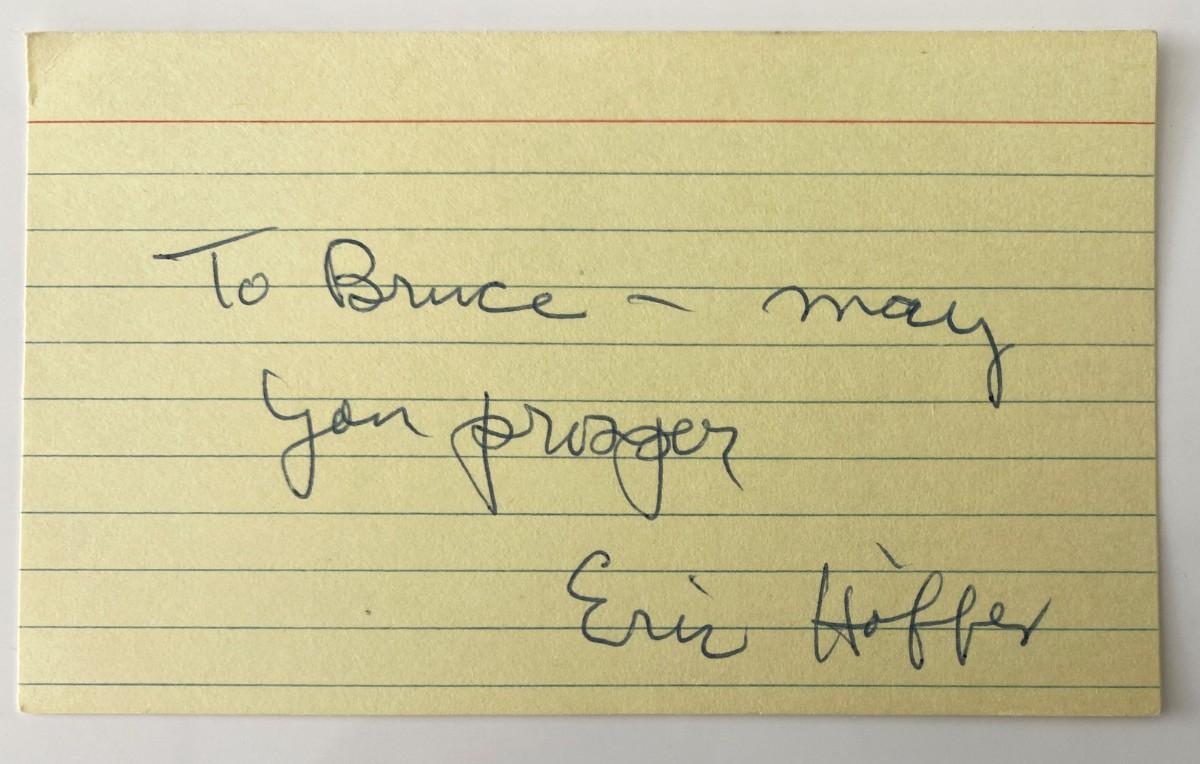 To Bruce – may
you prosper
Eric Hoffer